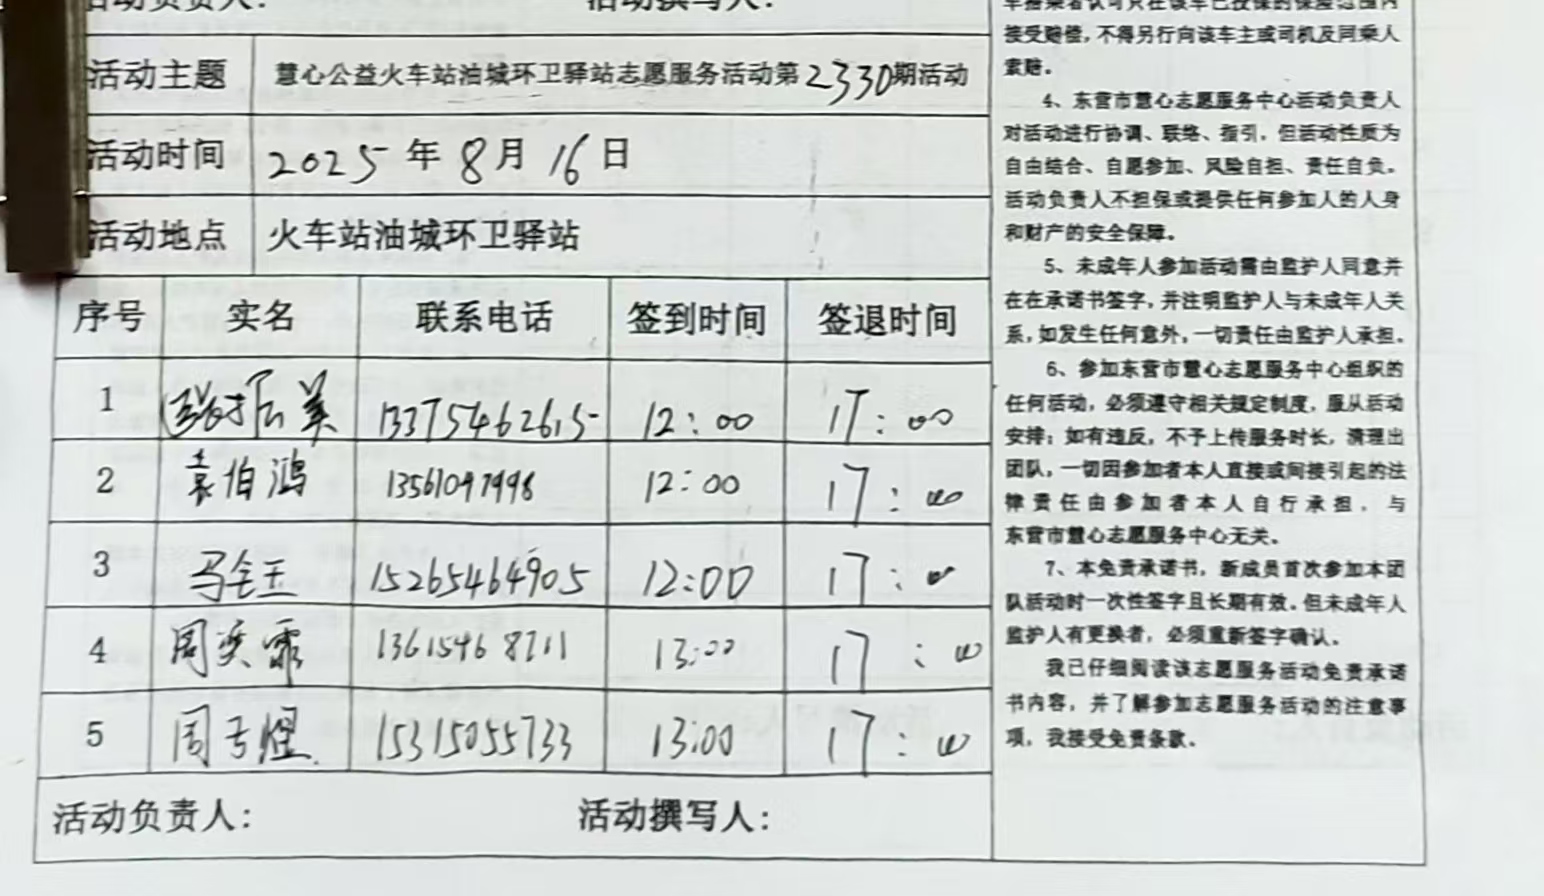 活动负责人：
活动撰写人：
活动主题 慧心公益火车站油城环卫驿站志愿服务活动第2330期活动
活动时间 2025年8月16日
活动地点 火车站油城环卫驿站
序号 实名 联系电话 签到时间 签退时间
1 13375462615 12:00 17:00
2 袁伯鸿 13561097998 12:00 17:00
3 马金玉 15265464905 12:00 17:00
4 周奕霏 13615468211 13:00 17:00
5 周于煜 15315055733 13:00 17:00
活动负责人： 活动撰写人：
车搭乘者认可只在该车已投保的保险范围内
接受赔偿，不得另行向该车主或司机及同乘人
索赔。
4、东营市慧心志愿服务中心活动负责人
对活动进行协调、联络、指引，但活动性质为
自由结合、自愿参加、风险自担、责任自负。
活动负责人不担保或提供任何参加人的人身
和财产的安全保障。
5、未成年人参加活动需由监护人同意并
在在承诺书签字，并注明监护人与未成年人关
系，如发生任何意外，一切责任由监护人承担。
6、参加东营市慧心志愿服务中心组织的
任何活动，必须遵守相关规定制度，服从活动
安排；如有违反，不予上传服务时长，清理出
团队，一切因参加者本人直接或间接引起的法
律责任由参加者本人自行承担，与
东营市慧心志愿服务中心无关。
7、本免责承诺书，新成员首次参加本团
队活动时一次性签字且长期有效。但未成年人
监护人有更换者，必须重新签字确认。
我已仔细阅读该志愿服务活动免责承诺
书内容，并了解参加志愿服务活动的注意事
项，我接受免责条款。